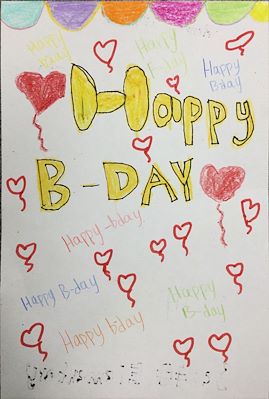 Happy
Bday
Happy
B-day
Happy
B-day
Happy
B-DAY
Happy-bday
Happy B-day
Happy
B-day
Happy b-day